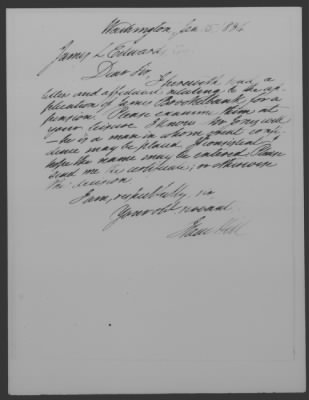 Washington, Jan 5, 1836
James L Edwards Esq
Dear Sir,
I herewith send a
letter and affidavit, relating to the ap-
plication of James Brooksbank for a
pension. Please examine them at
your leisure. I know
he is a man in whom great confi-
dence may be placed. If consistent
hope the name may be entered. Please
send me the certificate, or otherwise
the decision
I am, respectfully, sir
Your obt servant
Isaac Hill